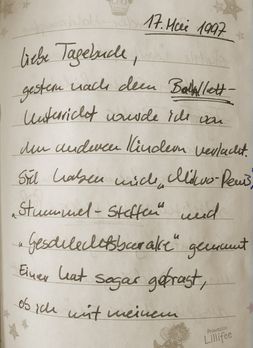 17. Mai 1997
Liebe Tagebuch,
gestern nach dem Ballett-
Unterricht wurde ich von
den anderen Kindern verlacht.
Sie haben mich „Mikro-Penis",
„Stummel-Steffen" und
„Geschlechtsbaracke" genannt
Einer hat sogar gefragt,
ob ich mit meinem
Prinzessin
Lillifee